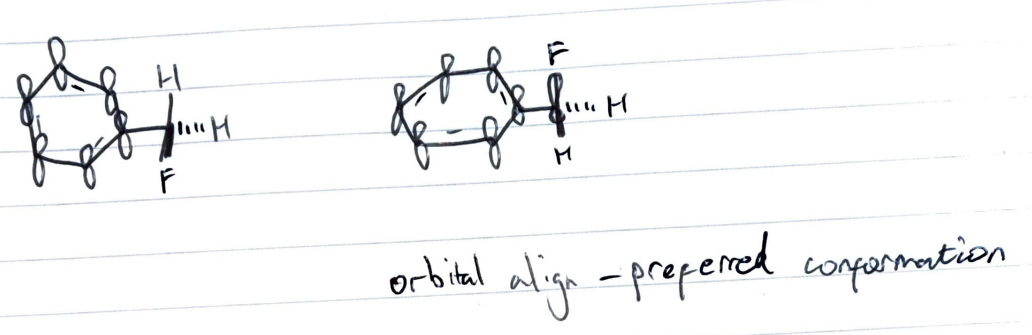 H
H
F
F
H
H
orbital align - preferred conformation